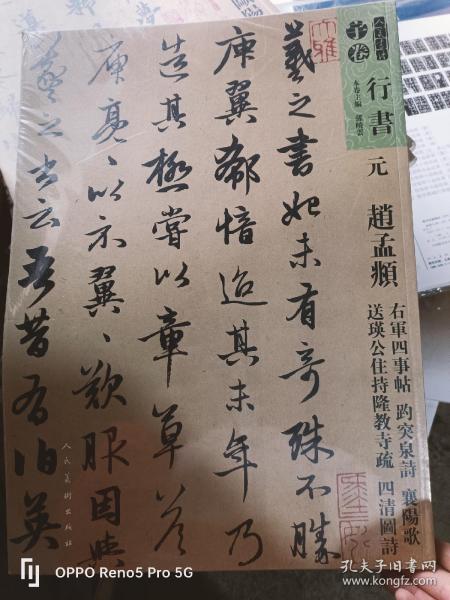 行書
元
趙孟頫
右軍四事帖 趵突泉詩 襄陽歌
送瑛公住持隆教寺疏 四清圖詩
大雅
羲之書始未有奇殊不勝
庾翼郗愔迨其末年乃
造其極嘗以章草答
庾亮〻以示翼〻歎服因與
羲之書云吾昔有伯英
人民美術出版社
OPPO Reno5 Pro 5G
孔夫子旧书网
www.kongfz.com